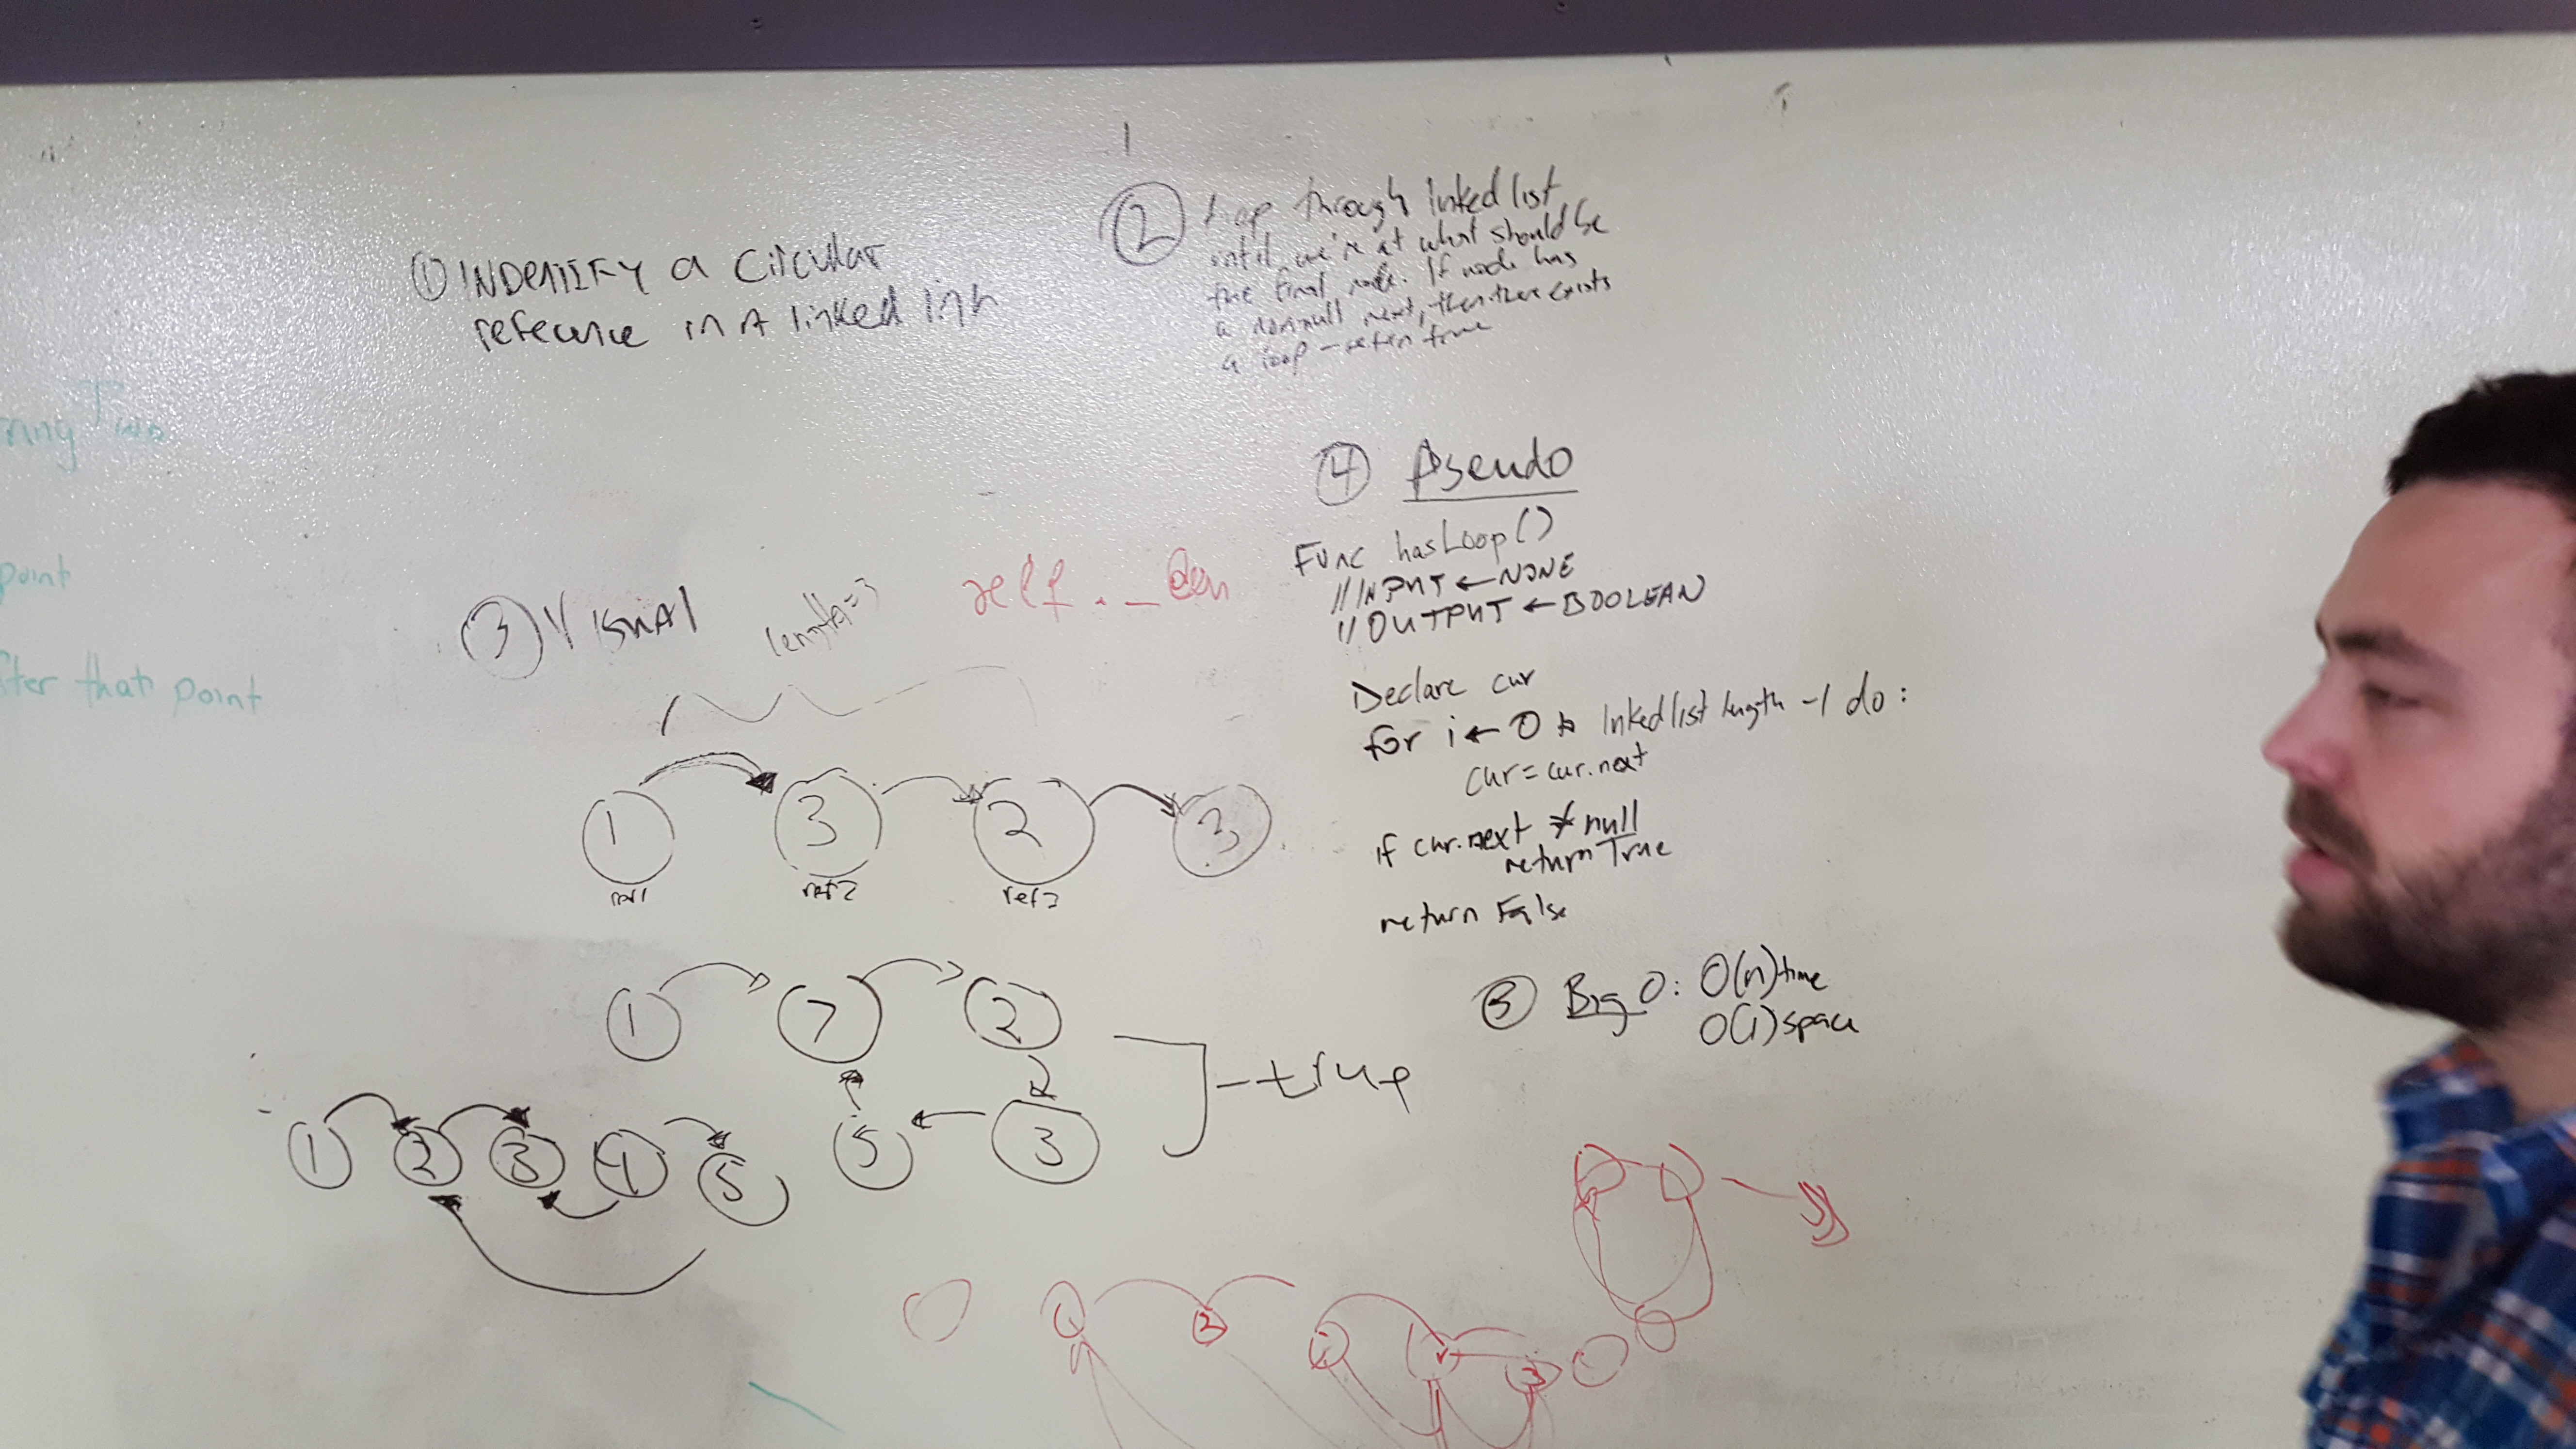 ① INDENTIFY a Circular
reference in A linked link
② Loop through linked list
until we're at what should be
the final node. If node has
a nonnull next, then there exists
a loop - return true
Two
point
after that point
③ Visual
length=3
self._len
1 3 2 3
ref1 ref2 ref3
1 7 2
5 3
- true
1 2 3 4 5
④ Pseudo
Func hasLoop()
// INPUT ← NONE
// OUTPUT ← BOOLEAN
Declare cur
for i ← 0 to linkedlist length -1 do:
cur = cur.next
if cur.next ≠ null
return True
return False
⑤ Big O: O(n) time
O(1) space
1 2